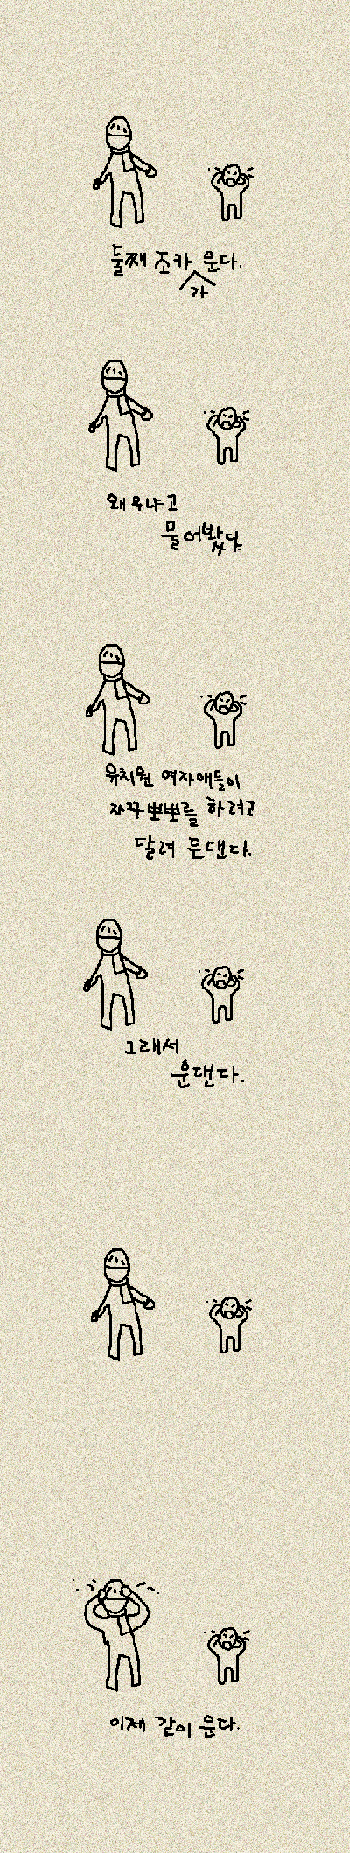 둘째 조카가 운다.
왜 우냐고
물어봤다.
유치원 여자애들이
자꾸 뽀뽀를 하려고
달려 든댄다.
그래서
운댄다.
이제 같이 운다.